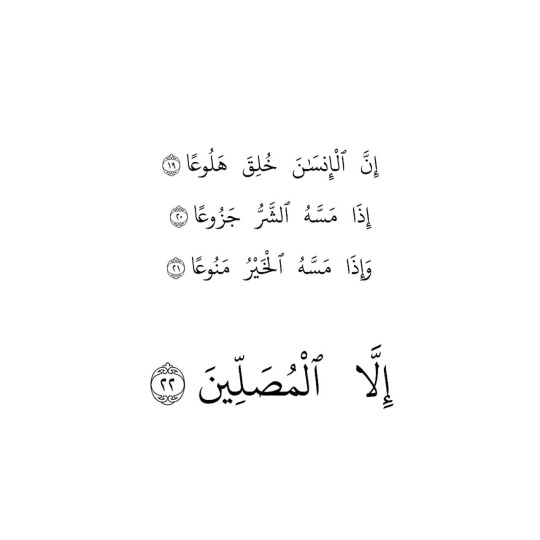 إِنَّ ٱلْإِنسَـٰنَ خُلِقَ هَلُوعًا ١٩
إِذَا مَسَّهُ ٱلشَّرُّ جَزُوعًا ٢٠
وَإِذَا مَسَّهُ ٱلْخَيْرُ مَنُوعًا ٢١
إِلَّا ٱلْمُصَلِّينَ ٢٢